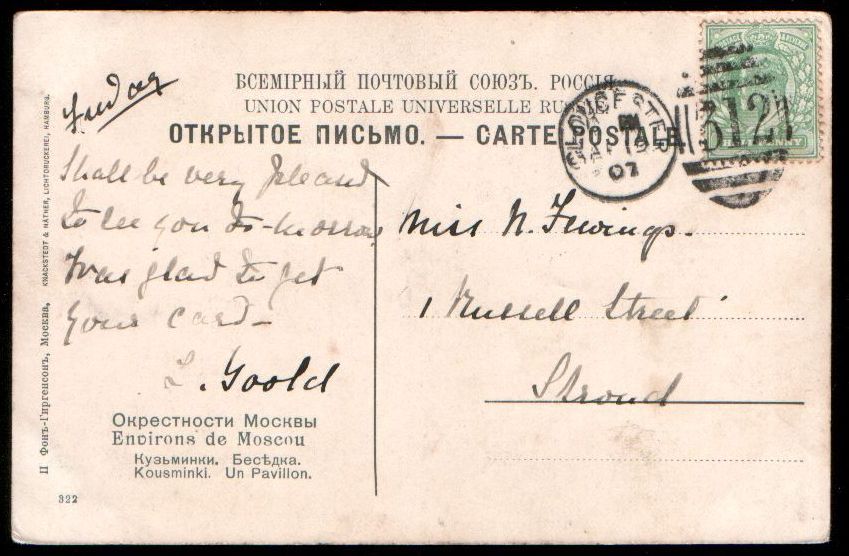 ВСЕМІРНЫЙ ПОЧТОВЫЙ СОЮЗЪ. РОССІЯ
UNION POSTALE UNIVERSELLE RU
ОТКРЫТОЕ ПИСЬМО. — CARTE POSTALE.
GLOUCESTER
07
312
Friday
Shall be very pleased
to see you to-morrow
Was glad to get
your card—
L. Goold
Miss N. Fewings.
1 Russell Street
Stroud
Окрестности Москвы
Environs de Moscou
Кузьминки. Бесѣдка.
Kousminki. Un Pavillon.
322
П Фонъ-Гиргенсонъ, Москва, KNACKSTEDT & NÄTHER, LICHTDRUCKEREI, HAMBURG.